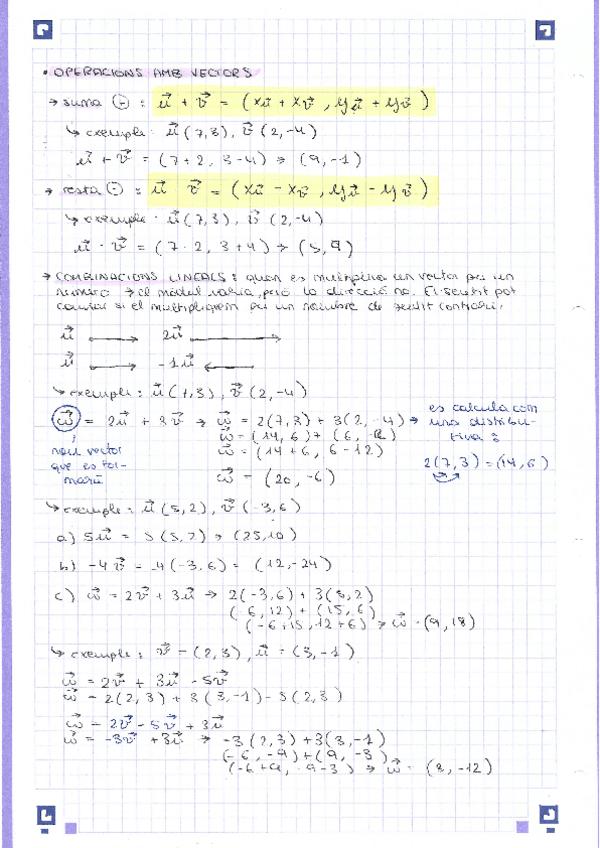 • OPERACIONS AMB VECTORS
→ suma (-) : u⃗ + v⃗ = (xu⃗ + xv⃗ , yu⃗ + yv⃗)
↳ exemple: u⃗(7,3), v⃗(2,-4)
u⃗ + v⃗ = (7+2, 3-4) → (9,-1)
→ resta (-) : u⃗ v⃗ = (xu⃗ - xv⃗ , yu⃗ - yv⃗)
↳ exemple · u⃗(7,3), v⃗(2,-4)
u⃗ · v⃗ = (7·2, 3+4) → (5,9)
→ COMBINACIONS LINEALS: quan es multiplica un vector per un
número → el mòdul varia, però la direcció no. El sentit pot
canviar si el multipliquem per un nombre de sentit contrari.
u⃗ ⟶ 2u⃗ ⟶
u⃗ ⟶ -1u⃗ ⟵
↳ exemple: u⃗(7,3), v⃗(2,-4)
w⃗ = 2u⃗ + 3v⃗ → w⃗ = 2(7,3) + 3(2,-4) →
w⃗ = (14,6) + (6,-12)
w⃗ = (14+6, 6-12)
w⃗ = (20,-6)
nou vector
que es for-
marà
es calcula com
una distribu-
tiva :
2(7,3) = (14,6)
↳ exemple: u⃗(5,2), v⃗(-3,6)
a) 5u⃗ = 5(5,2) → (25,10)
b) -4v⃗ = -4(-3,6) = (12,-24)
c) w⃗ = 2v⃗ + 3u⃗ → 2(-3,6) + 3(5,2)
(-6,12) + (15,6)
(-6+15, 12+6) → w⃗ · (9,18)
↳ exemple: v⃗ = (2,3), u⃗ = (3,-1)
w⃗ = 2v⃗ + 3u⃗ - 5v⃗
w⃗ = 2(2,3) + 3(3,-1) - 5(2,3)
w⃗ = 2v⃗ - 5v⃗ + 3u⃗
w⃗ = -3v⃗ + 3u⃗ → -3(2,3) + 3(3,-1)
(-6,-9) + (9,-3)
(-6+9, -9-3) → w⃗ = (3,-12)